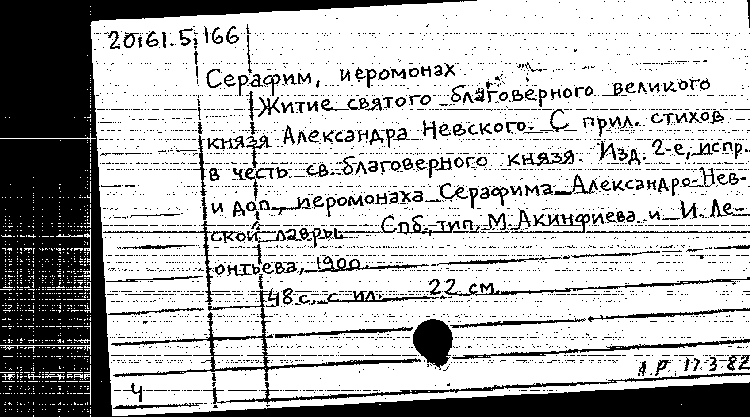 20161.5 166
Серафим, иеромонах
Житие святого благоверного великого
князя Александра Невского. С прил. стихов
в честь св. благоверного князя. Изд. 2-е, испр.
и доп., иеромонаха Серафима Александро-Нев-
ской лавры. Спб., тип. М. Акинфиева и И. Ле-
онтьева, 1900.
48 с. с ил. 22 см.
17.3.82
4